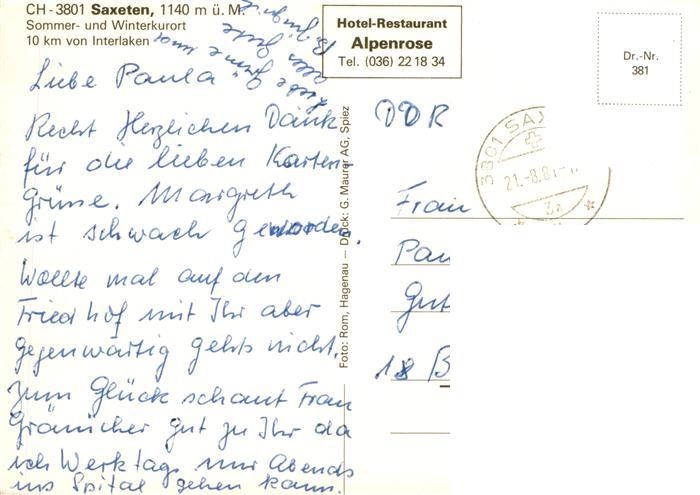 CH - 3801 Saxeten, 1140 m ü. M.
Sommer- und Winterkurort
10 km von Interlaken
Hotel-Restaurant
Alpenrose
Tel. (036) 22 18 34
Dr.-Nr.
381
Liebe Paula
Recht Herzlichen Dank
für die lieben Karten-
Grüsse. Margreth
ist schwach geworden.
Wollte mal auf den
Friedhof mit Ihr aber
gegenwärtig gehts nicht.
Zum Glück schaut Frau
gut zu Ihr da
ich Werktags nur Abends
ins Spital gehen kann.
Liebe Grüsse und
alles Gute
Foto: Rom, Hagenau — Druck: G. Maurer AG, Spiez
DDR
3801 SAX
21.-8.8
Frau
Pau
Gut
18 B